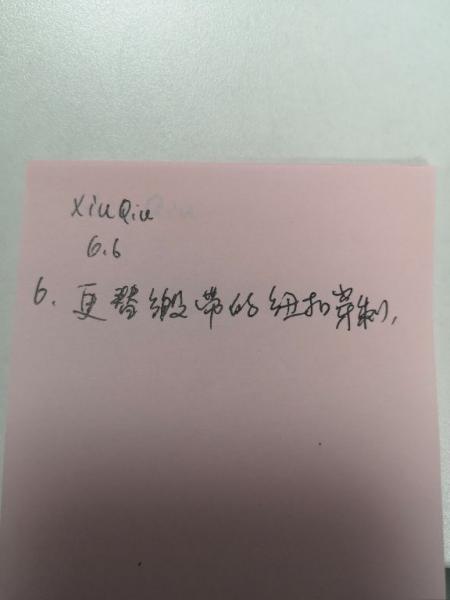 XiuQiu
6.6
6. 更替缎带的纽扣穿制,